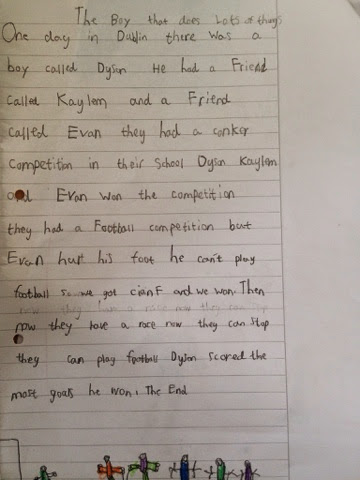 The Boy that does Lots of things
One day in Dublin there was a
boy called Dyson He had a Friend
called Kaylem and a Friend
called Evan they had a conker
competition in their School Dyson Kaylem
and Evan won the competition
they had a Football competition but
Evan hurt his foot he can't play
football so we got cian F and we won. Then
now they have a race now they can stop
they can play football Dyson scored the
most goals he won. The End